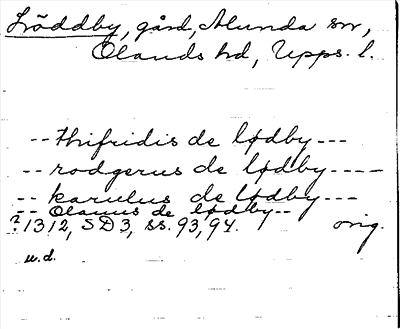 Löddby, gård, Alunda sn,
Olands hd, Upps. l.
-- thifridis de lødby ---
-- rodgerus de lødby ----
-- karulus de lødby ---
-- Olauus de lødby --
? 1312, SD3, ss. 93, 94. orig.
u.d.